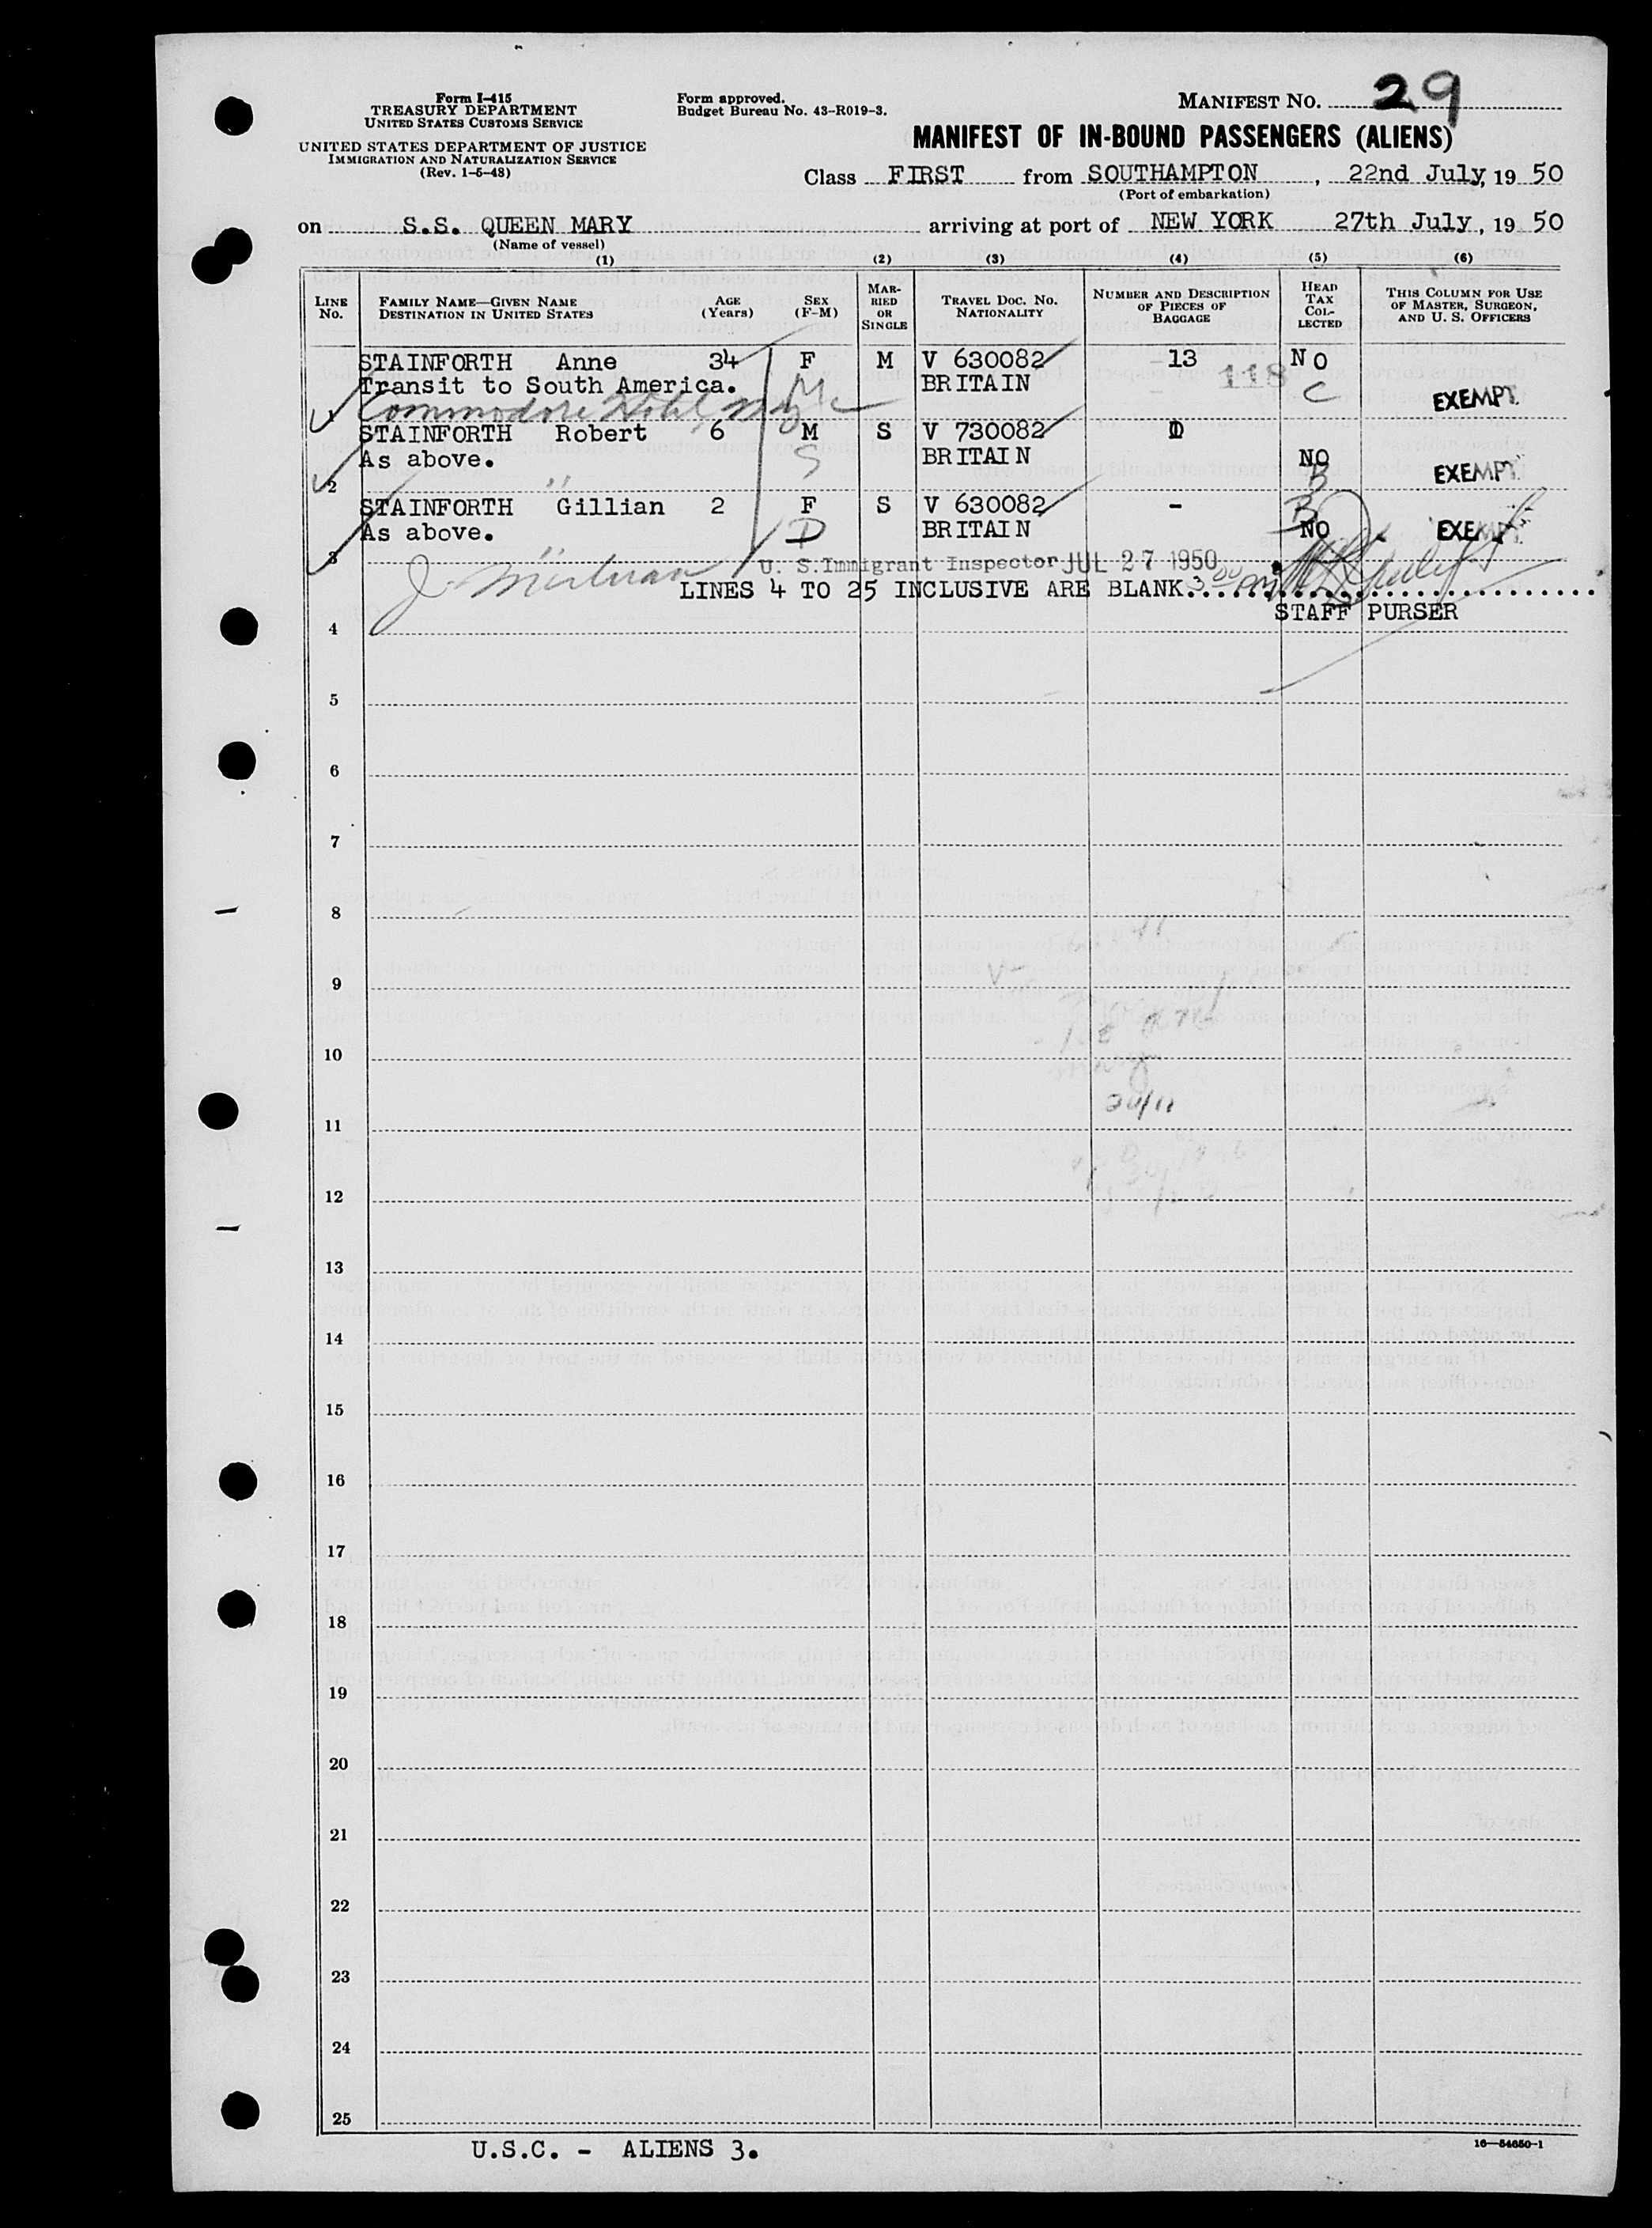 Form I-415
TREASURY DEPARTMENT
UNITED STATES CUSTOMS SERVICE
UNITED STATES DEPARTMENT OF JUSTICE
IMMIGRATION AND NATURALIZATION SERVICE
(Rev. 1-5-48)
Form approved.
Budget Bureau No. 43-R019-3.
MANIFEST NO. 29
MANIFEST OF IN-BOUND PASSENGERS (ALIENS)
Class FIRST from SOUTHAMPTON, 22nd July, 19 50
(Port of embarkation)
on S.S. QUEEN MARY arriving at port of NEW YORK 27th July, 19 50
(Name of vessel)
(1) (2) (3) (4) (5) (6)
LINE No. FAMILY NAME—GIVEN NAME DESTINATION IN UNITED STATES AGE (Years) SEX (F-M) MARRIED OR SINGLE TRAVEL DOC. NO. NATIONALITY NUMBER AND DESCRIPTION OF PIECES OF BAGGAGE HEAD TAX COLLECTED THIS COLUMN FOR USE OF MASTER, SURGEON, AND U. S. OFFICERS
STAINFORTH Anne 34 F M V 630082 13 NO
Transit to South America. M BRITAIN 118 C EXEMPT.
1 Commodore Hotel, NYC
STAINFORTH Robert 6 M S V 730082 D
As above. S BRITAIN NO EXEMPT.
2 " B
STAINFORTH Gillian 2 F S V 630082 - B
As above. D BRITAIN NO EXEMPT.
3 " U. S. Immigrant Inspector JUL 27 1950
LINES 4 TO 25 INCLUSIVE ARE BLANK.
STAFF PURSER
4
5
6
7
8
9
10
11
12
13
14
15
16
17
18
19
20
21
22
23
24
25
U.S.C. - ALIENS 3.
16-54650-1